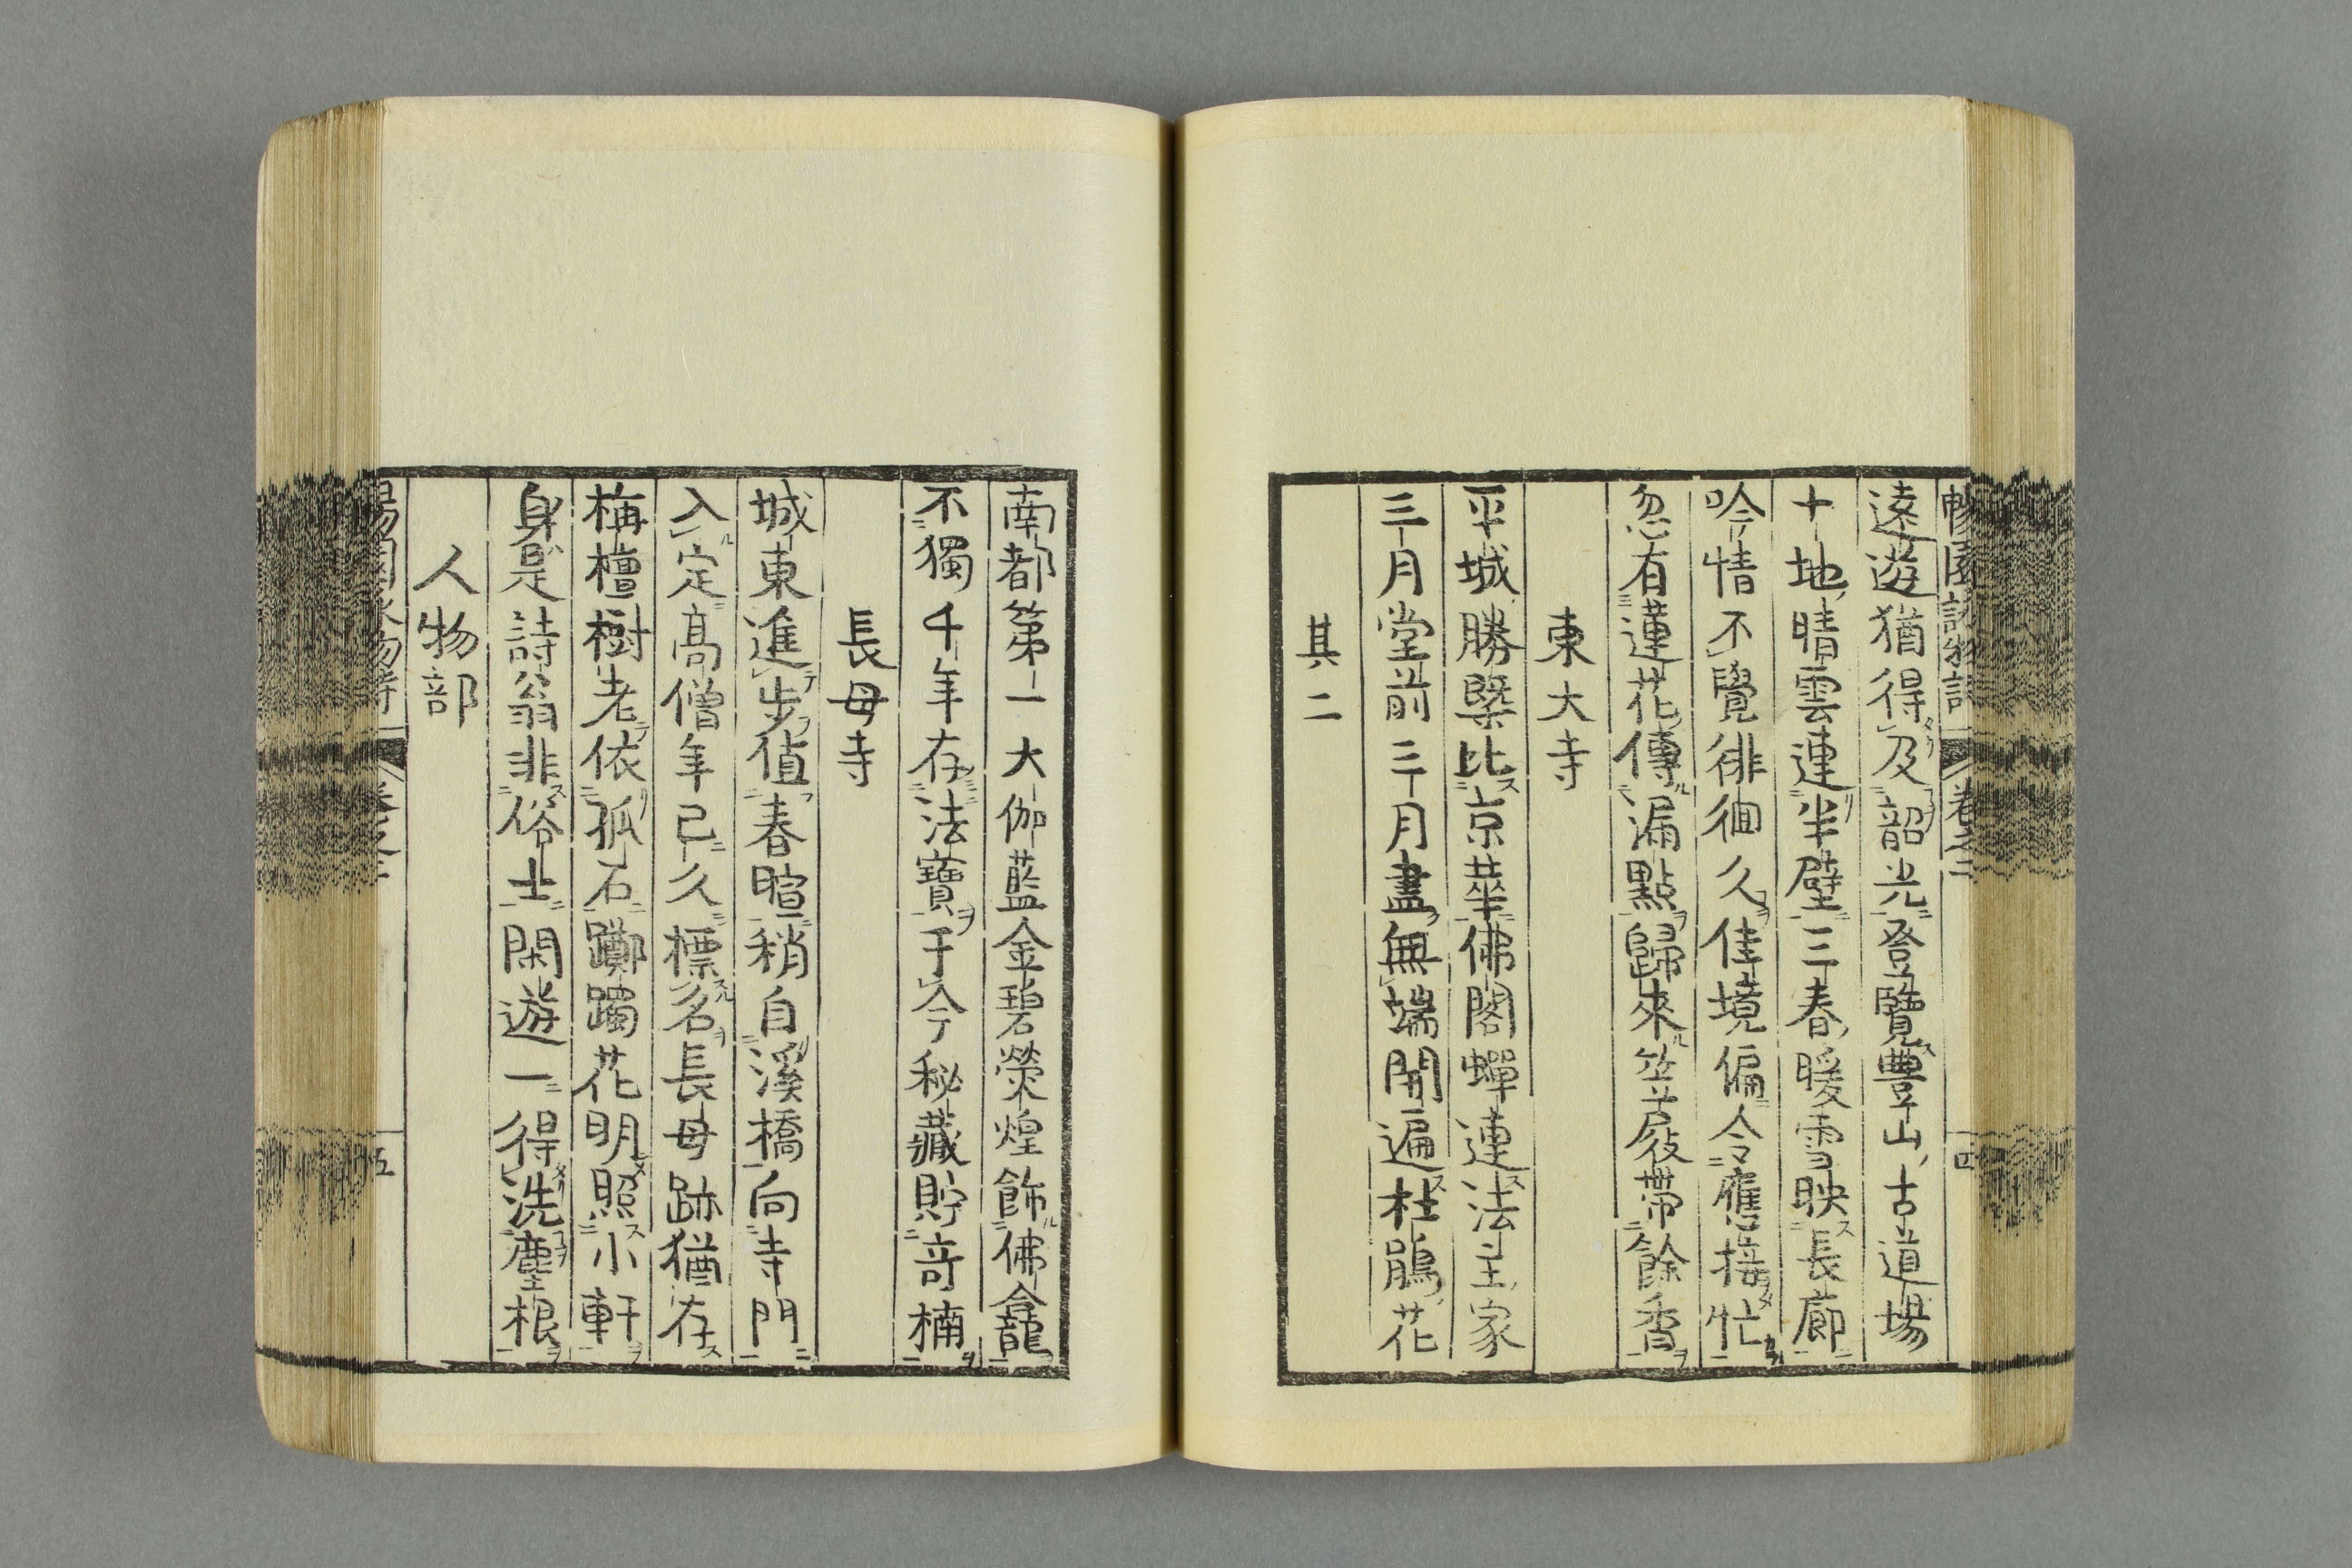 遠遊猶得及韶光登覽豐山古道場
十地晴雲連半壁三春暖雪映長廊
吟情不覺徘徊久佳境偏令應接忙
忽有蓮花傳漏點歸來笠屐帶餘香
東大寺
平城勝槩比京華佛閣蟬連法王家
三月堂前三月盡無端開遍杜鵑花
其二
南都第一大伽藍金碧熒煌飾佛龕
不獨千年存法寶于今秘藏貯奇楠
長母寺
城東進步值春暄稍自溪橋向寺門
入定高僧年已久標名長母跡猶存
栴檀樹老依孤石躑躅花明照小軒
身是詩翁非俗士閑遊一得洗塵根
人物部